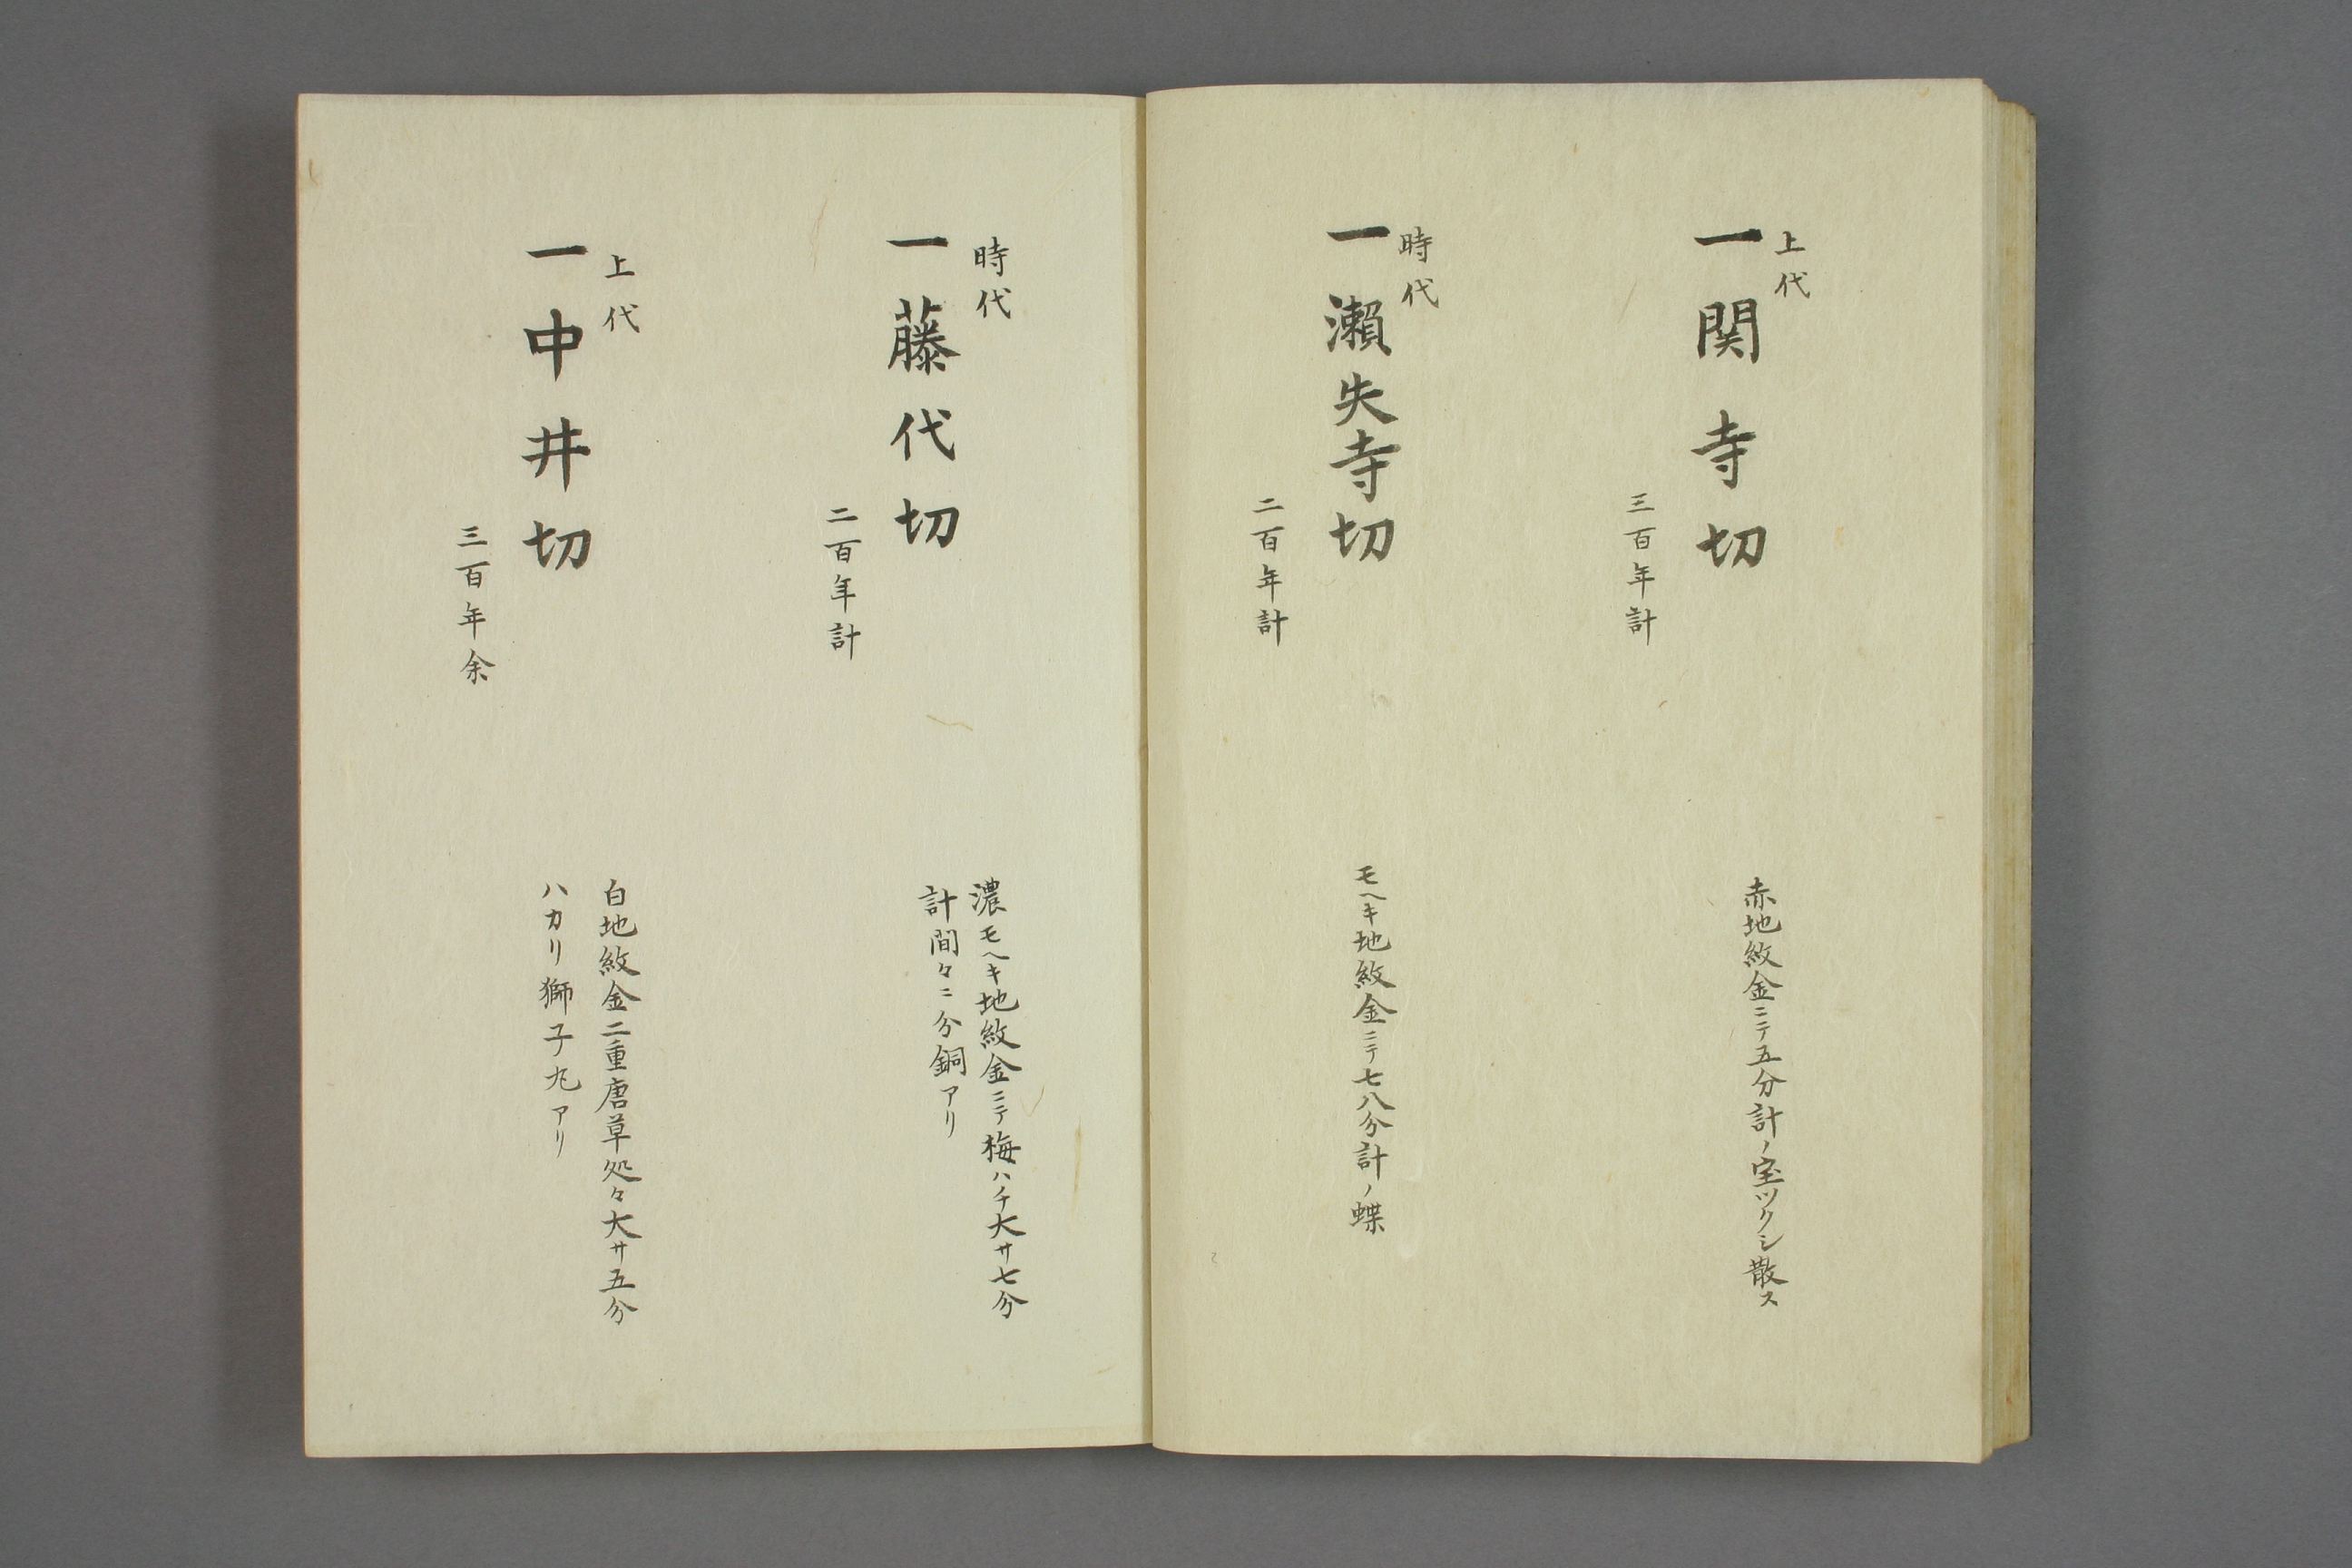 上代
一関寺切
三百年計
赤地紋金ニテ五分計ノ宝ツクシ散ス
時代
一瀬失寺切
二百年計
モヘキ地紋金ニテ七八分計ノ蝶
時代
一藤代切
二百年計
濃モヘキ地紋金ニテ梅ハチ大サ七分
計間々ニ分銅アリ
上代
一中井切
三百年余
白地紋金二重唐草処々大サ五分
ハカリ獅子丸アリ